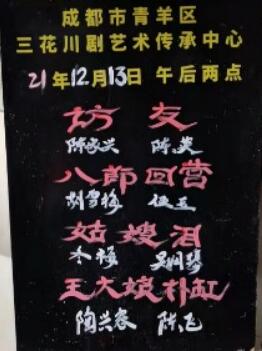 成都市青羊区
三花川剧艺术传承中心
21年12月13日 午后两点
访友
陈家兴 陈美
八郎回营
刘雪梅 伍五
姑嫂泪
冬梅 吴明琴
王大娘补缸
陶兴容 陈飞